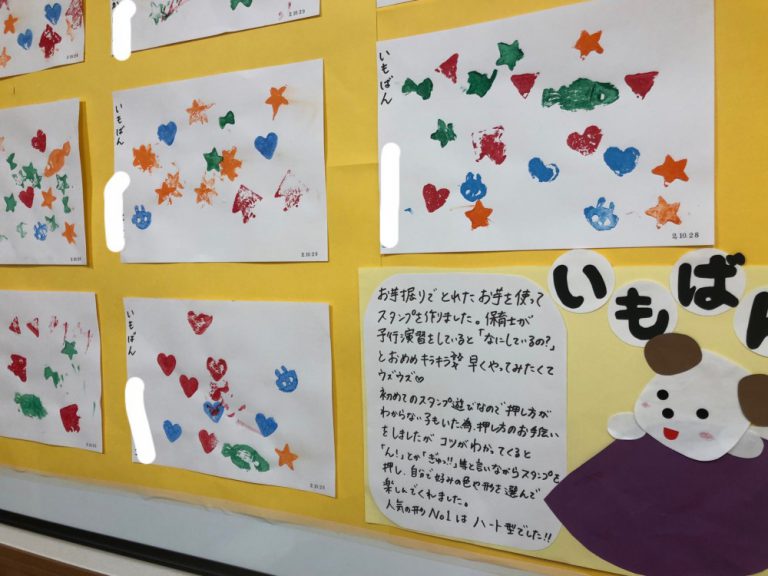 2.10.29
いもばん
2.10.28
いもばん
2.10.29
いもばん
2.10.28
いもばん
お芋掘りでとれたお芋を使って
スタンプを作りました。保育士が
予行演習をしていると「なにしているの?」
とおめめキラキラ 早くやってみたくて
ウズウズ♡
初めてのスタンプ遊びなので押し方が
わからない子もいた為、押し方のお手伝い
をしましたが コツがわかってくると
「ん!」とか「ぎゅっ!!」等と言いながらスタンプを
押し、自分で好みの色や形を選んで
楽しんでくれました。
人気の形 No1は ハート型でした!!